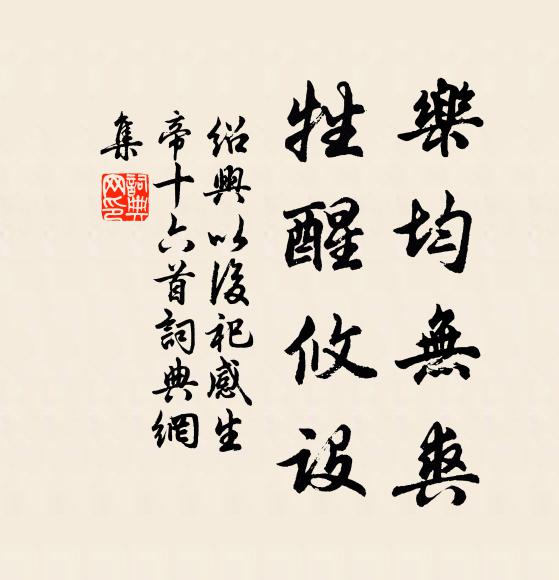 樂均無爽
牲醒攸設
紹興以後祀感生
帝十六首詞典網
集
詞典
网印